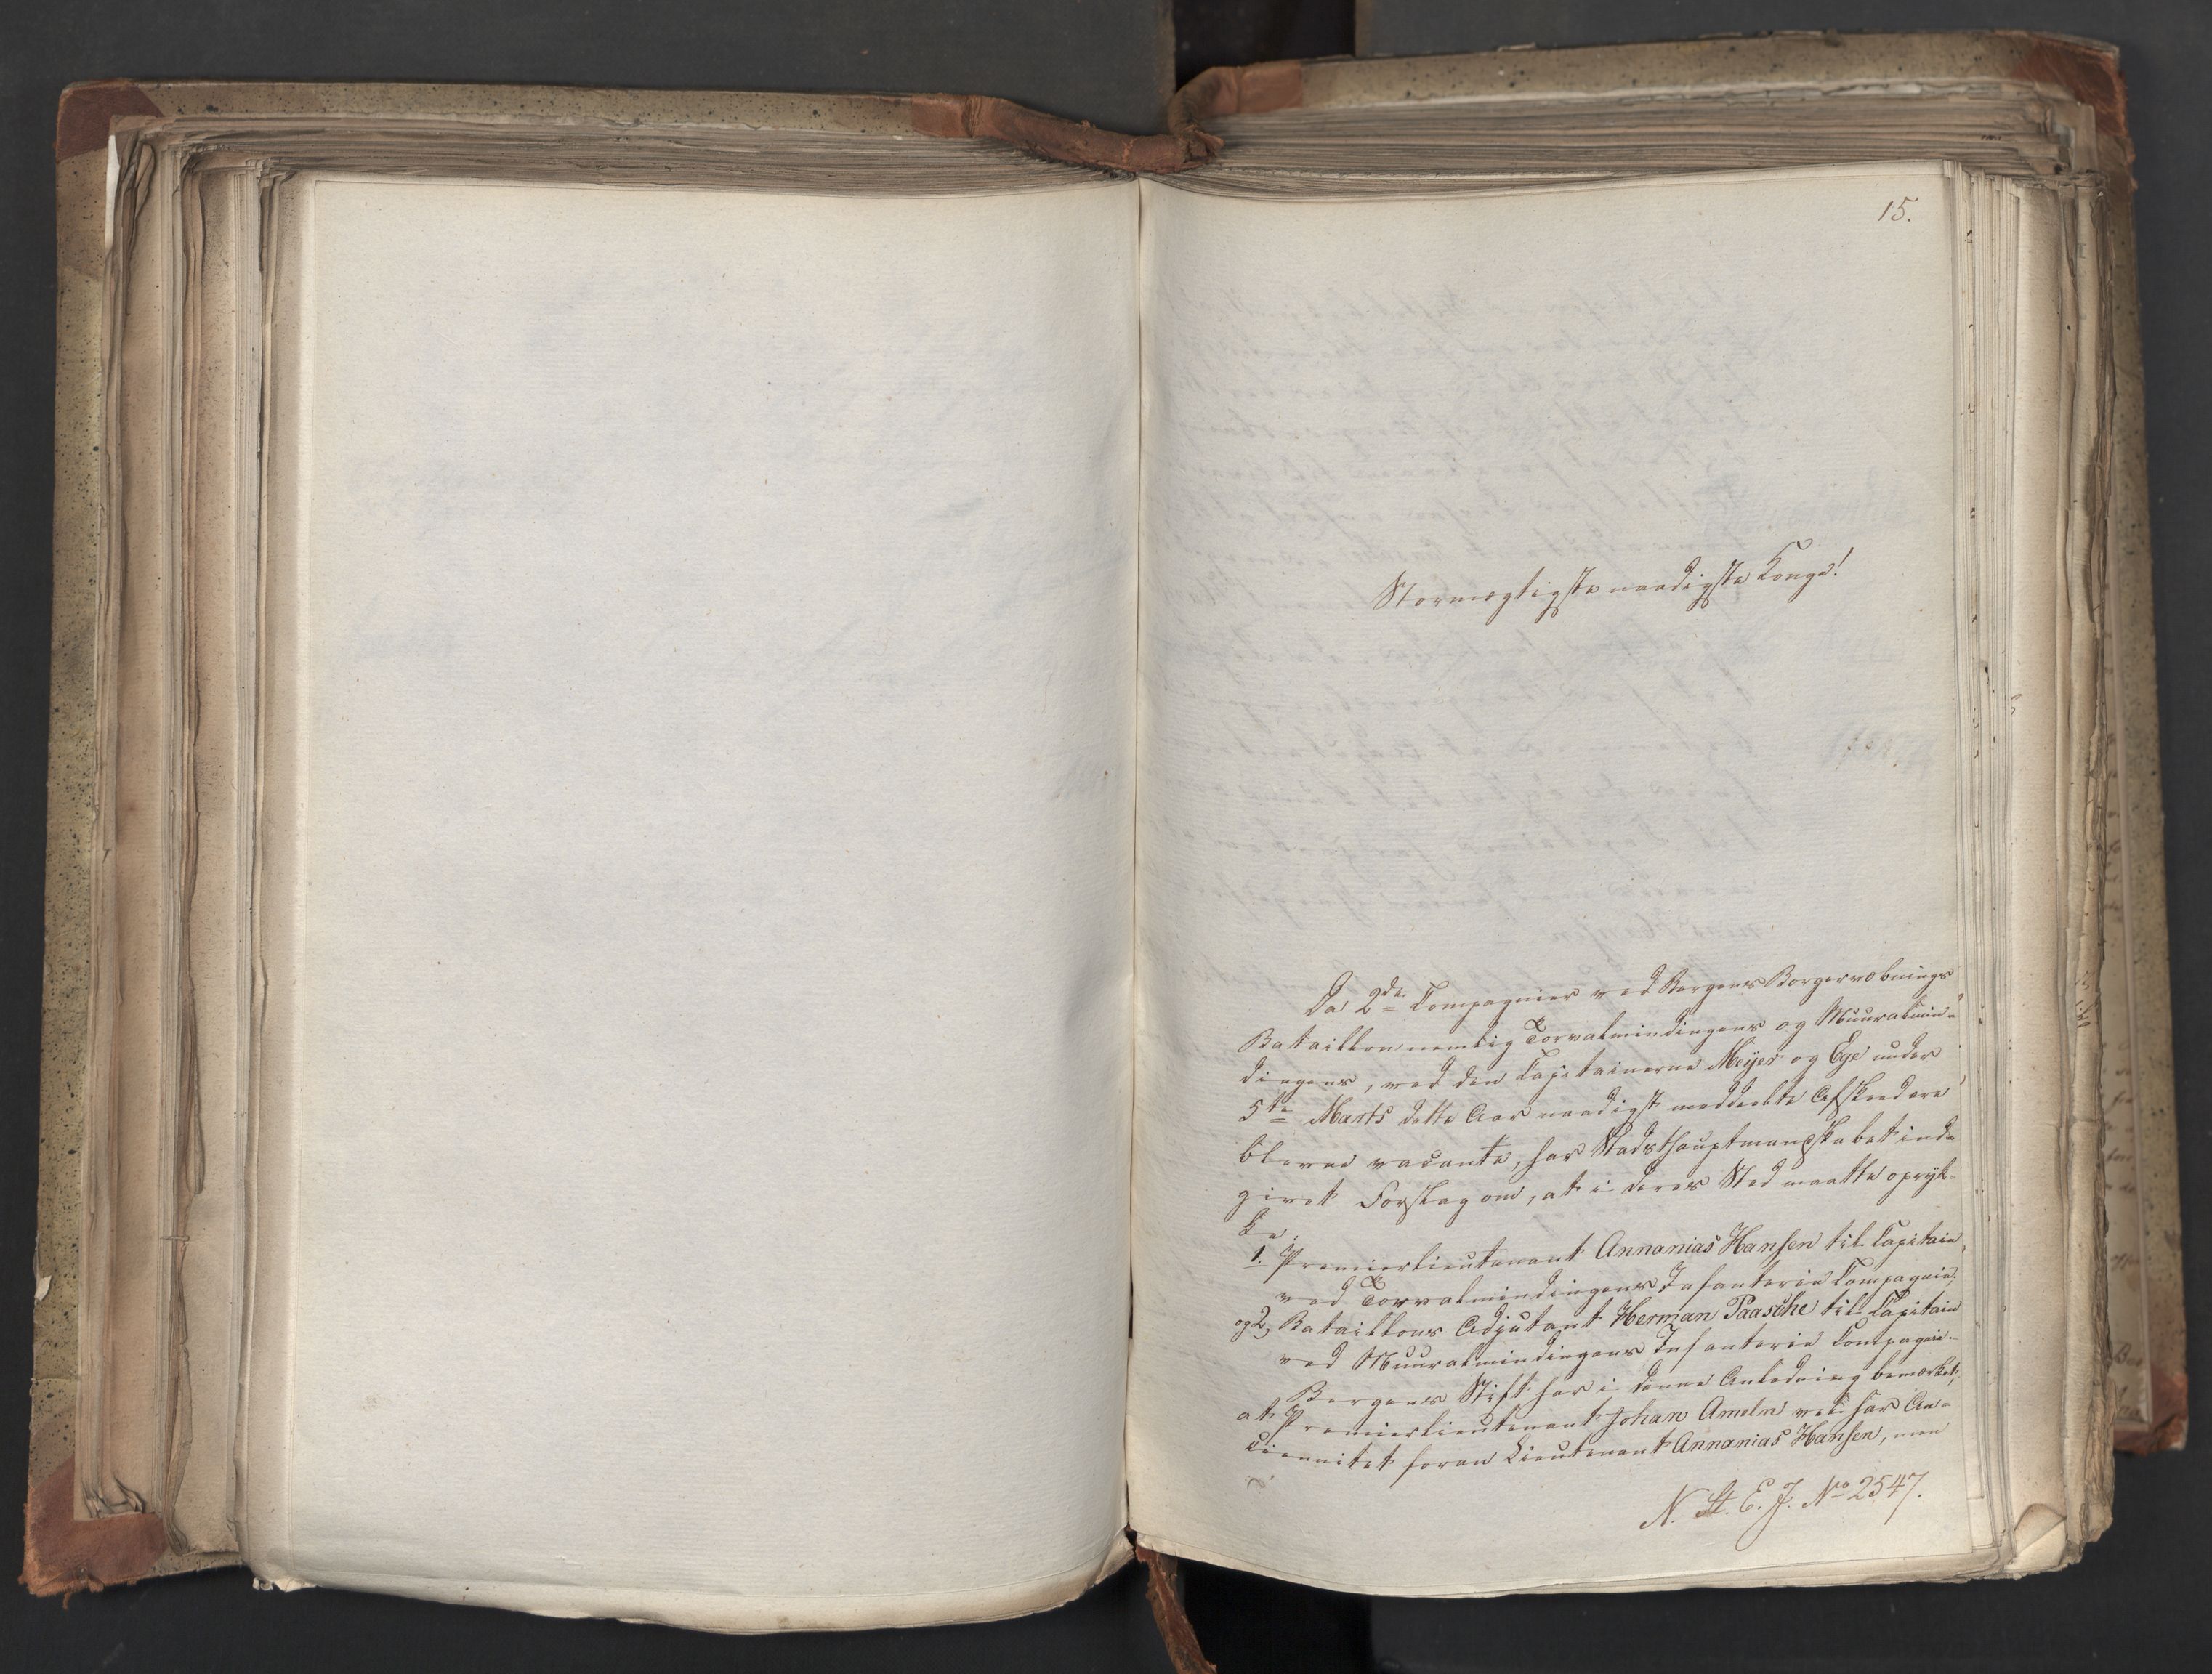 15.
Stormægtigste naadigste Konge!
Da 2de Compagnier ved Bergens Borgervæbnings
Bataillon nemlig Torvalmindingens og Muuralmin-
dingens, ved den Capitainerne Meyer og Ege under
5te Marts dette Aar naadigst meddeelte Afskeed ere
blevne vacante, har Stadshauptmandskabet ind-
givet Forslag om, at i deres Sted maatte opryk-
ke:
1. Premierlieutenant Annanias Hansen til Capitain
ved Torvalmindingens Infanterie Compagnie;
og 2, Bataillons Adjutant Herman Paasche til Capitain
ved Muuralmindingens Infanterie Compagnie.
Bergens Stift har i denne Anledning bemærket,
at Premierlieutenant Johan Ameln vel har An-
ciennitet foran Lieutenant Annanias Hansen, men
N. St. E. J. No 2547.